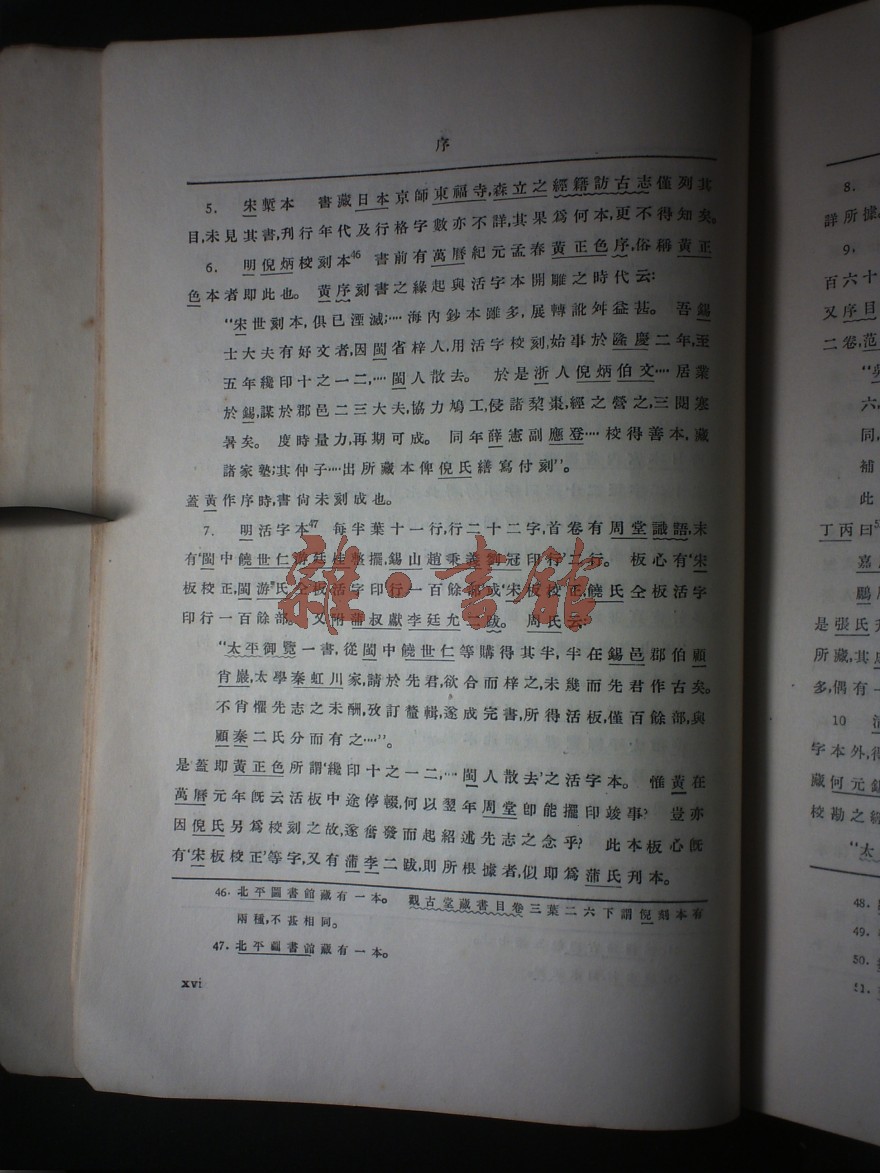 序
5. 宋槧本 書藏日本京師東福寺,森立之經籍訪古志僅列其
目,未見其書,刊行年代及行格字數亦不詳,其果爲何本,更不得知矣。
6. 明倪炳校刻本46 書前有萬曆紀元孟春黃正色序,俗稱黃正
色本者即此也。 黃序刻書之緣起與活字本開雕之時代云:
“宋世刻本,俱已湮滅;····海內鈔本雖多,展轉訛舛益甚。 吾錫
士大夫有好文者,因閩省梓人,用活字校刻,始事於隆慶二年,至
五年纔印十之一二,····閩人散去。 於是浙人倪炳伯文····居業
於錫,謀於郡邑二三大夫,協力鳩工,侵諸棃棗,經之營之,三閱寒
暑矣。 度時量力,再期可成。 同年薛憲副應登····校得善本,藏
諸家塾;其仲子····出所藏本俾倪氏繕寫付刻”。
蓋黃作序時,書尙未刻成也。
7. 明活字本47 每半葉十一行,行二十二字,首卷有周堂識語,末
有‘閩中饒世仁游廷桂整擺,錫山趙秉義劉冠印行’二行。 板心有‘宋
板校正,閩游氏仝板活字印行一百餘部’或‘宋板校正,饒氏仝板活字
印行一百餘部’。 又附蒲叔獻李廷允二跋。 周氏云:
“太平御覽一書,從閩中饒世仁等購得其半,半在錫邑郡伯顧
肖巖,太學秦虹川家,請於先君,欲合而梓之,未幾而先君作古矣。
不肖懼先志之未酬,攷訂釐輯,遂成完書,所得活板,僅百餘部,與
顧秦二氏分而有之····”。
是蓋即黃正色所謂‘纔印十之一二,····閩人散去’之活字本。 惟黃在
萬曆元年旣云活板中途停輟,何以翌年周堂卽能擺印竣事? 豈亦
因倪氏另爲校刻之故,遂奮發而起紹述先志之念乎? 此本板心旣
有‘宋板校正’等字,又有蒲李二跋,則所根據者,似即爲蒲氏刊本。
46. 北平圖書館藏有一本。 觀古堂藏書目卷三葉二六下謂倪刻本有
兩種,不甚相同。
47. 北平圖書館藏有一本。
xvi
雜·書館
8.
詳所據
9.
百六十
又序目
二卷,范
“吳
六,
同,
補
此
丁丙曰
嘉
鵬
是張氏
所藏,其
多,偶有一
10
字本外,得
藏何元錫
校勘之
“太
48.
49.
50.
51.